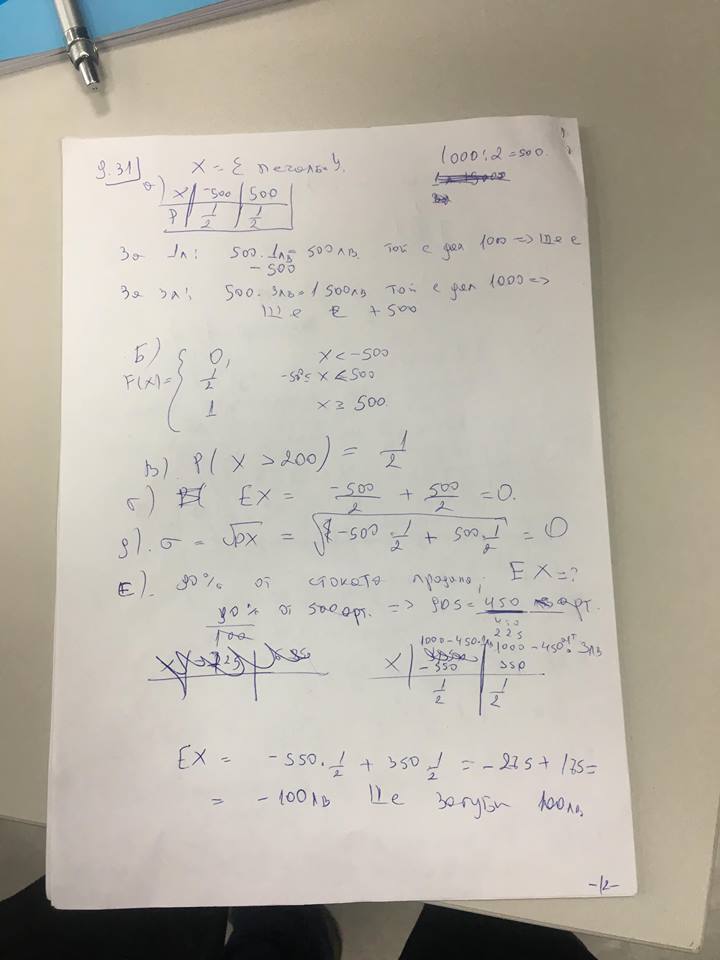 9.31 X = { печалба }
1000:2=500.
а) X | -500 | 500
P | 1/2 | 1/2
За 1лв: 500.1лв=500лв. той е дал 1000 => Ще е
-500
За 3лв: 500.3лв=1500лв той е дал 1000 =>
Ще е +500
Б)
F(x)= { 0, x<-500
1/2 -505 x ≤500
1 x≥500.
в). P(X>200) = 1/2
г) EX = -500/2 + 500/2 =0.
д). σ = √DX = √-500.1/2 + 500.1/2 = 0
Е). 90% от стоката продано; EX=?
90%/100 от 500 арт. => 90.5=450 арт.
450
225
1000-450.1лв | 1000-450.3лв
X | -550 | 350
1/2 | 1/2
EX = -550.1/2 + 350.1/2 = -275+175=
= -100лв Ще загуби 100лв
-12-